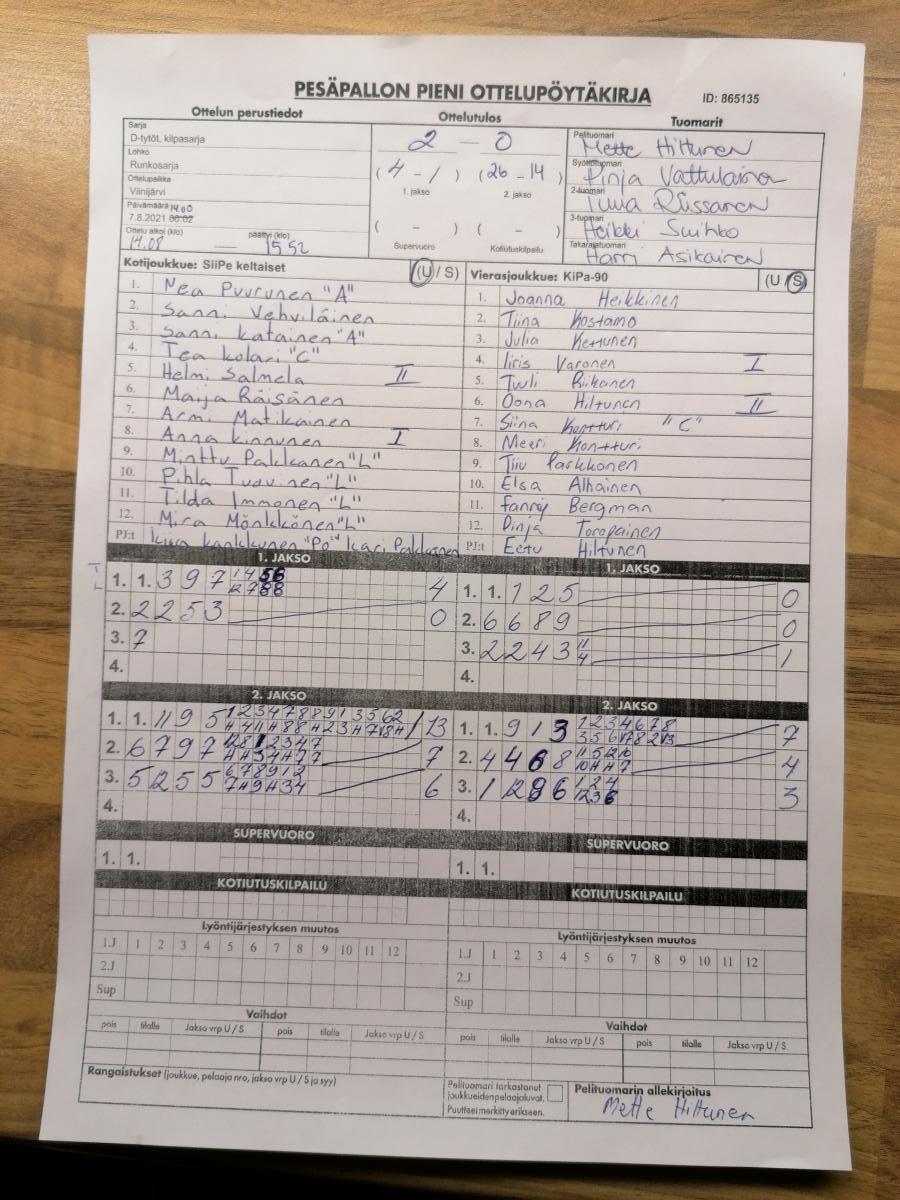 PESÄPALLON PIENI OTTELUPÖYTÄKIRJA
ID: 865135
Ottelun perustiedot
Ottelutulos
Tuomarit
Sarja
D-tytöt, kilpasarja
Lohko
Runkosarja
Ottelupaikka
Viinijärvi
Päivämäärä 14.00
7.8.2021 00:02
Ottelu alkoi (klo) päättyi (klo)
14.08 — 15.52
2 — 0
(4 - 1) (26 - 14)
1. jakso 2. jakso
( - ) ( - )
Supervuoro Kotiutuskilpailu
Pelituomari
Mette Hiltunen
Syöttötuomari
Pinja Vattulainen
2-tuomari
Tuula Riissanen
3-tuomari
Heikki Suihko
Takarajatuomari
Harri Asikainen
Kotijoukkue: SiiPe keltaiset (U / S)
1. Nea Puurunen "A"
2. Sanni Vehviläinen
3. Sanni Katainen "A"
4. Tea Kolari "C"
5. Helmi Salmela II
6. Maija Räisänen
7. Armi Matikainen
8. Anna Kinnunen I
9. Minttu Pakkanen "L"
10. Pihla Tuovinen "L"
11. Tilda Immonen "L"
12. Mira Mönkkönen "L"
PJ:t "Po" Kari Pakkanen
Vierasjoukkue: KiPa-90 (U / S)
1. Joanna Heikkinen
2. Tiina Kostamo
3. Julia Kettunen
4. Iiris Varonen I
5. Tuuli Riikonen
6. Oona Hiltunen II
7. Siina Kontturi "C"
8. Meeri Kontturi
9. Tiiu Parkkonen
10. Elsa Alhainen
11. Fanny Bergman
12. Pinja Toropainen
PJ:t Eetu Hiltunen
1. JAKSO
1. 1. 3 9 7 4
2. 2 2 5 3 0
3. 7
4.
1. JAKSO
1. 1. 1 2 5 0
2. 6 6 8 9 0
3. 2 2 4 3 11 4 1
4.
2. JAKSO
1. 1. 11 9 5 13
2. 6 7 9 7 7
3. 5 12 5 5 6
4.
2. JAKSO
1. 1. 9 1 3 7
2. 4 4 6 8 4
3. 1 12 8 6 3
4.
SUPERVUORO
1. 1.
SUPERVUORO
1. 1.
KOTIUTUSKILPAILU
KOTIUTUSKILPAILU
Lyöntijärjestyksen muutos
1.J 1 2 3 4 5 6 7 8 9 10 11 12
2.J
Sup
Lyöntijärjestyksen muutos
1.J 1 2 3 4 5 6 7 8 9 10 11 12
2.J
Sup
Vaihdot
pois tilalle Jakso vrp U / S pois tilalle Jakso vrp U / S
Vaihdot
pois tilalle Jakso vrp U / S pois tilalle Jakso vrp U / S
Rangaistukset (joukkue, pelaaja nro, jakso vrp U / S ja syy)
Pelituomari tarkastanut
joukkueidenpelaajaluvat.
Puutteet merkitty erikseen.
Pelituomarin allekirjoitus
Mette Hiltunen